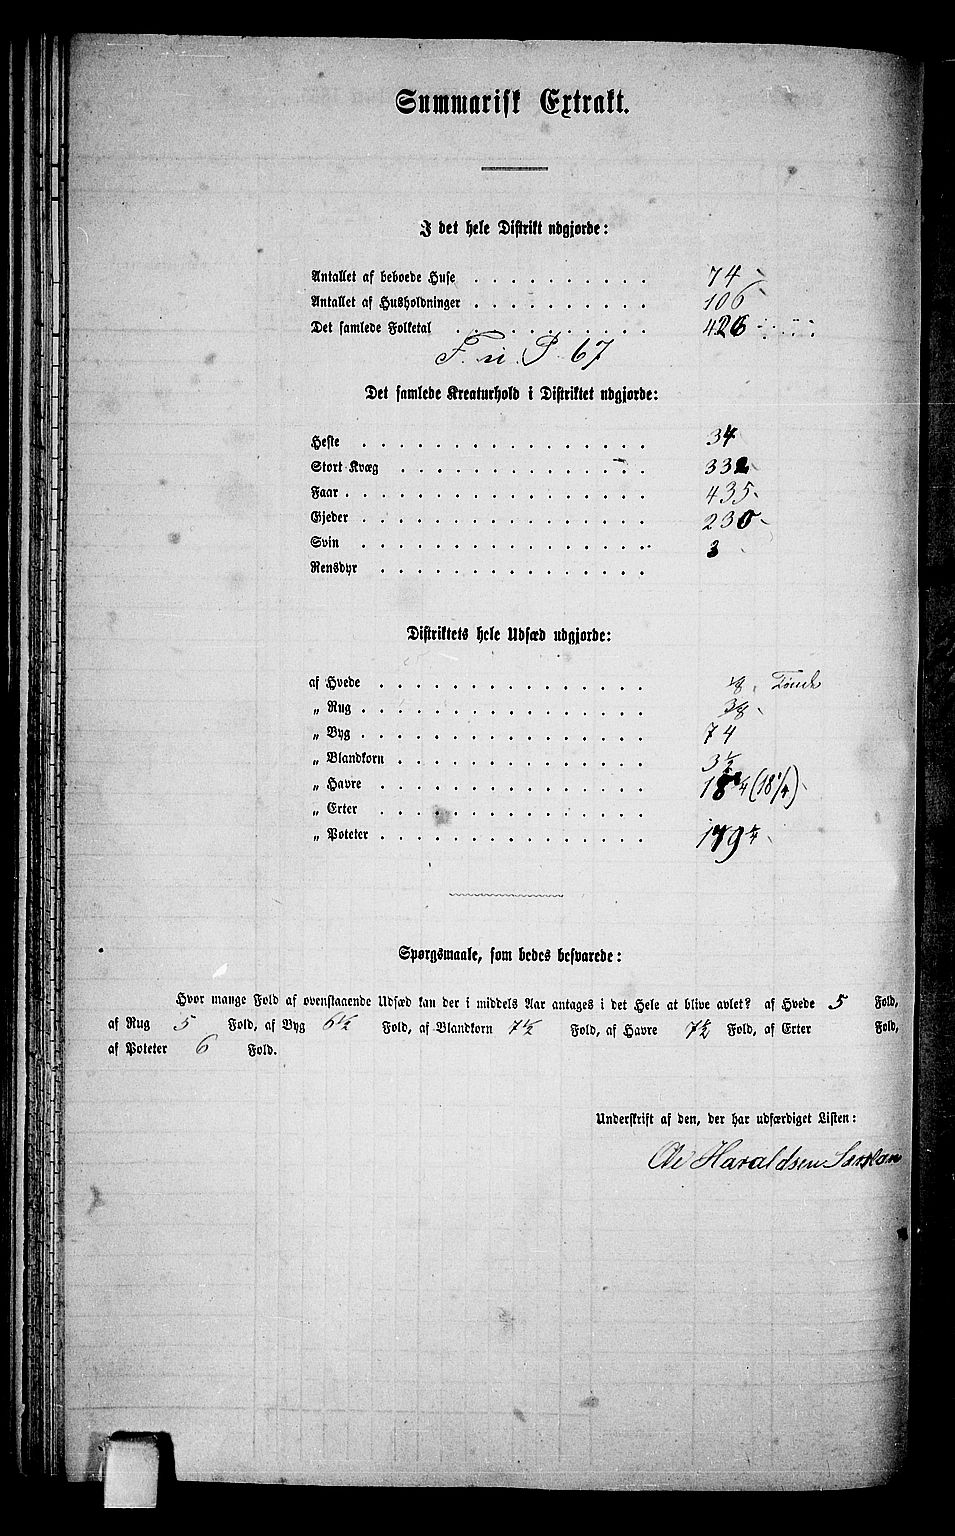 Summarisk Extrakt.
I det hele Distrikt udgjorde:
Antallet af beboede Huse . . . . . . . . . . 74
Antallet af Husholdninger . . . . . . . . . . 106
Det samlede Folketal . . . . . . . . . . . 426
67
Det samlede Kreaturhold i Distriktet udgjorde:
Heste . . . . . . . . . . . . . . . . 34
Stort Kvæg . . . . . . . . . . . . . . 332
Faar . . . . . . . . . . . . . . . . . 435
Gjeder . . . . . . . . . . . . . . . . 230
Svin . . . . . . . . . . . . . . . . 3
Rensdyr . . . . . . . . . . . . . . .
Distriktets hele Udsæd udgjorde:
af Hvede . . . . . . . . . . . . . . . 1/8 Tønde
„ Rug . . . . . . . . . . . . . . . . 3/8
„ Byg . . . . . . . . . . . . . . . . 74
„ Blandkorn . . . . . . . . . . . . . . 3 1/2
„ Havre . . . . . . . . . . . . . . . (18 1/4)
„ Erter . . . . . . . . . . . . . . .
„ Poteter . . . . . . . . . . . . . . .
Spørgsmaale, som bedes besvarede:
Hvor mange Fold af ovenstaaende Udsæd kan der i middels Aar antages i det Hele at blive avlet? af Hvede 5 Fold,
af Rug 5 Fold, af Byg 6 1/2 Fold, af Blandkorn 7 1/2 Fold, af Havre 7 1/2 Fold, af Erter Fold,
af Poteter 6 Fold.
Underskrift af den, der har udfærdiget Listen:
Ole Haraldsen